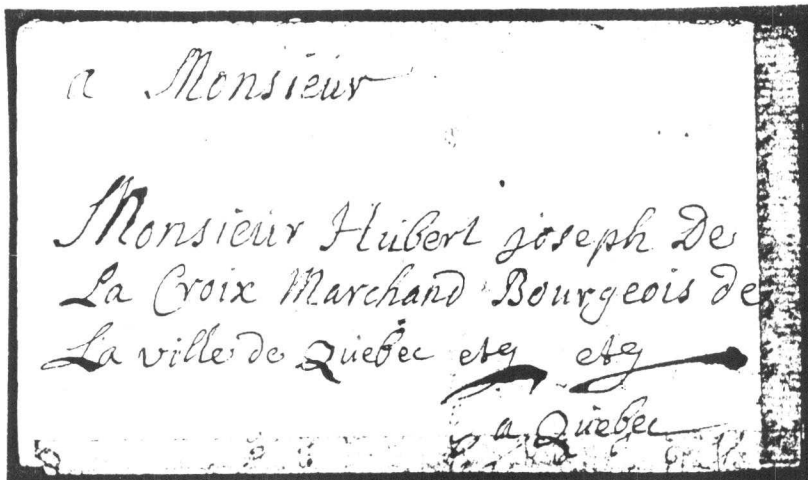 a Monsieur
Monsieur Hubert joseph De
La Croix Marchand Bourgeois de
La ville de Quebec etc etc
a Quebec